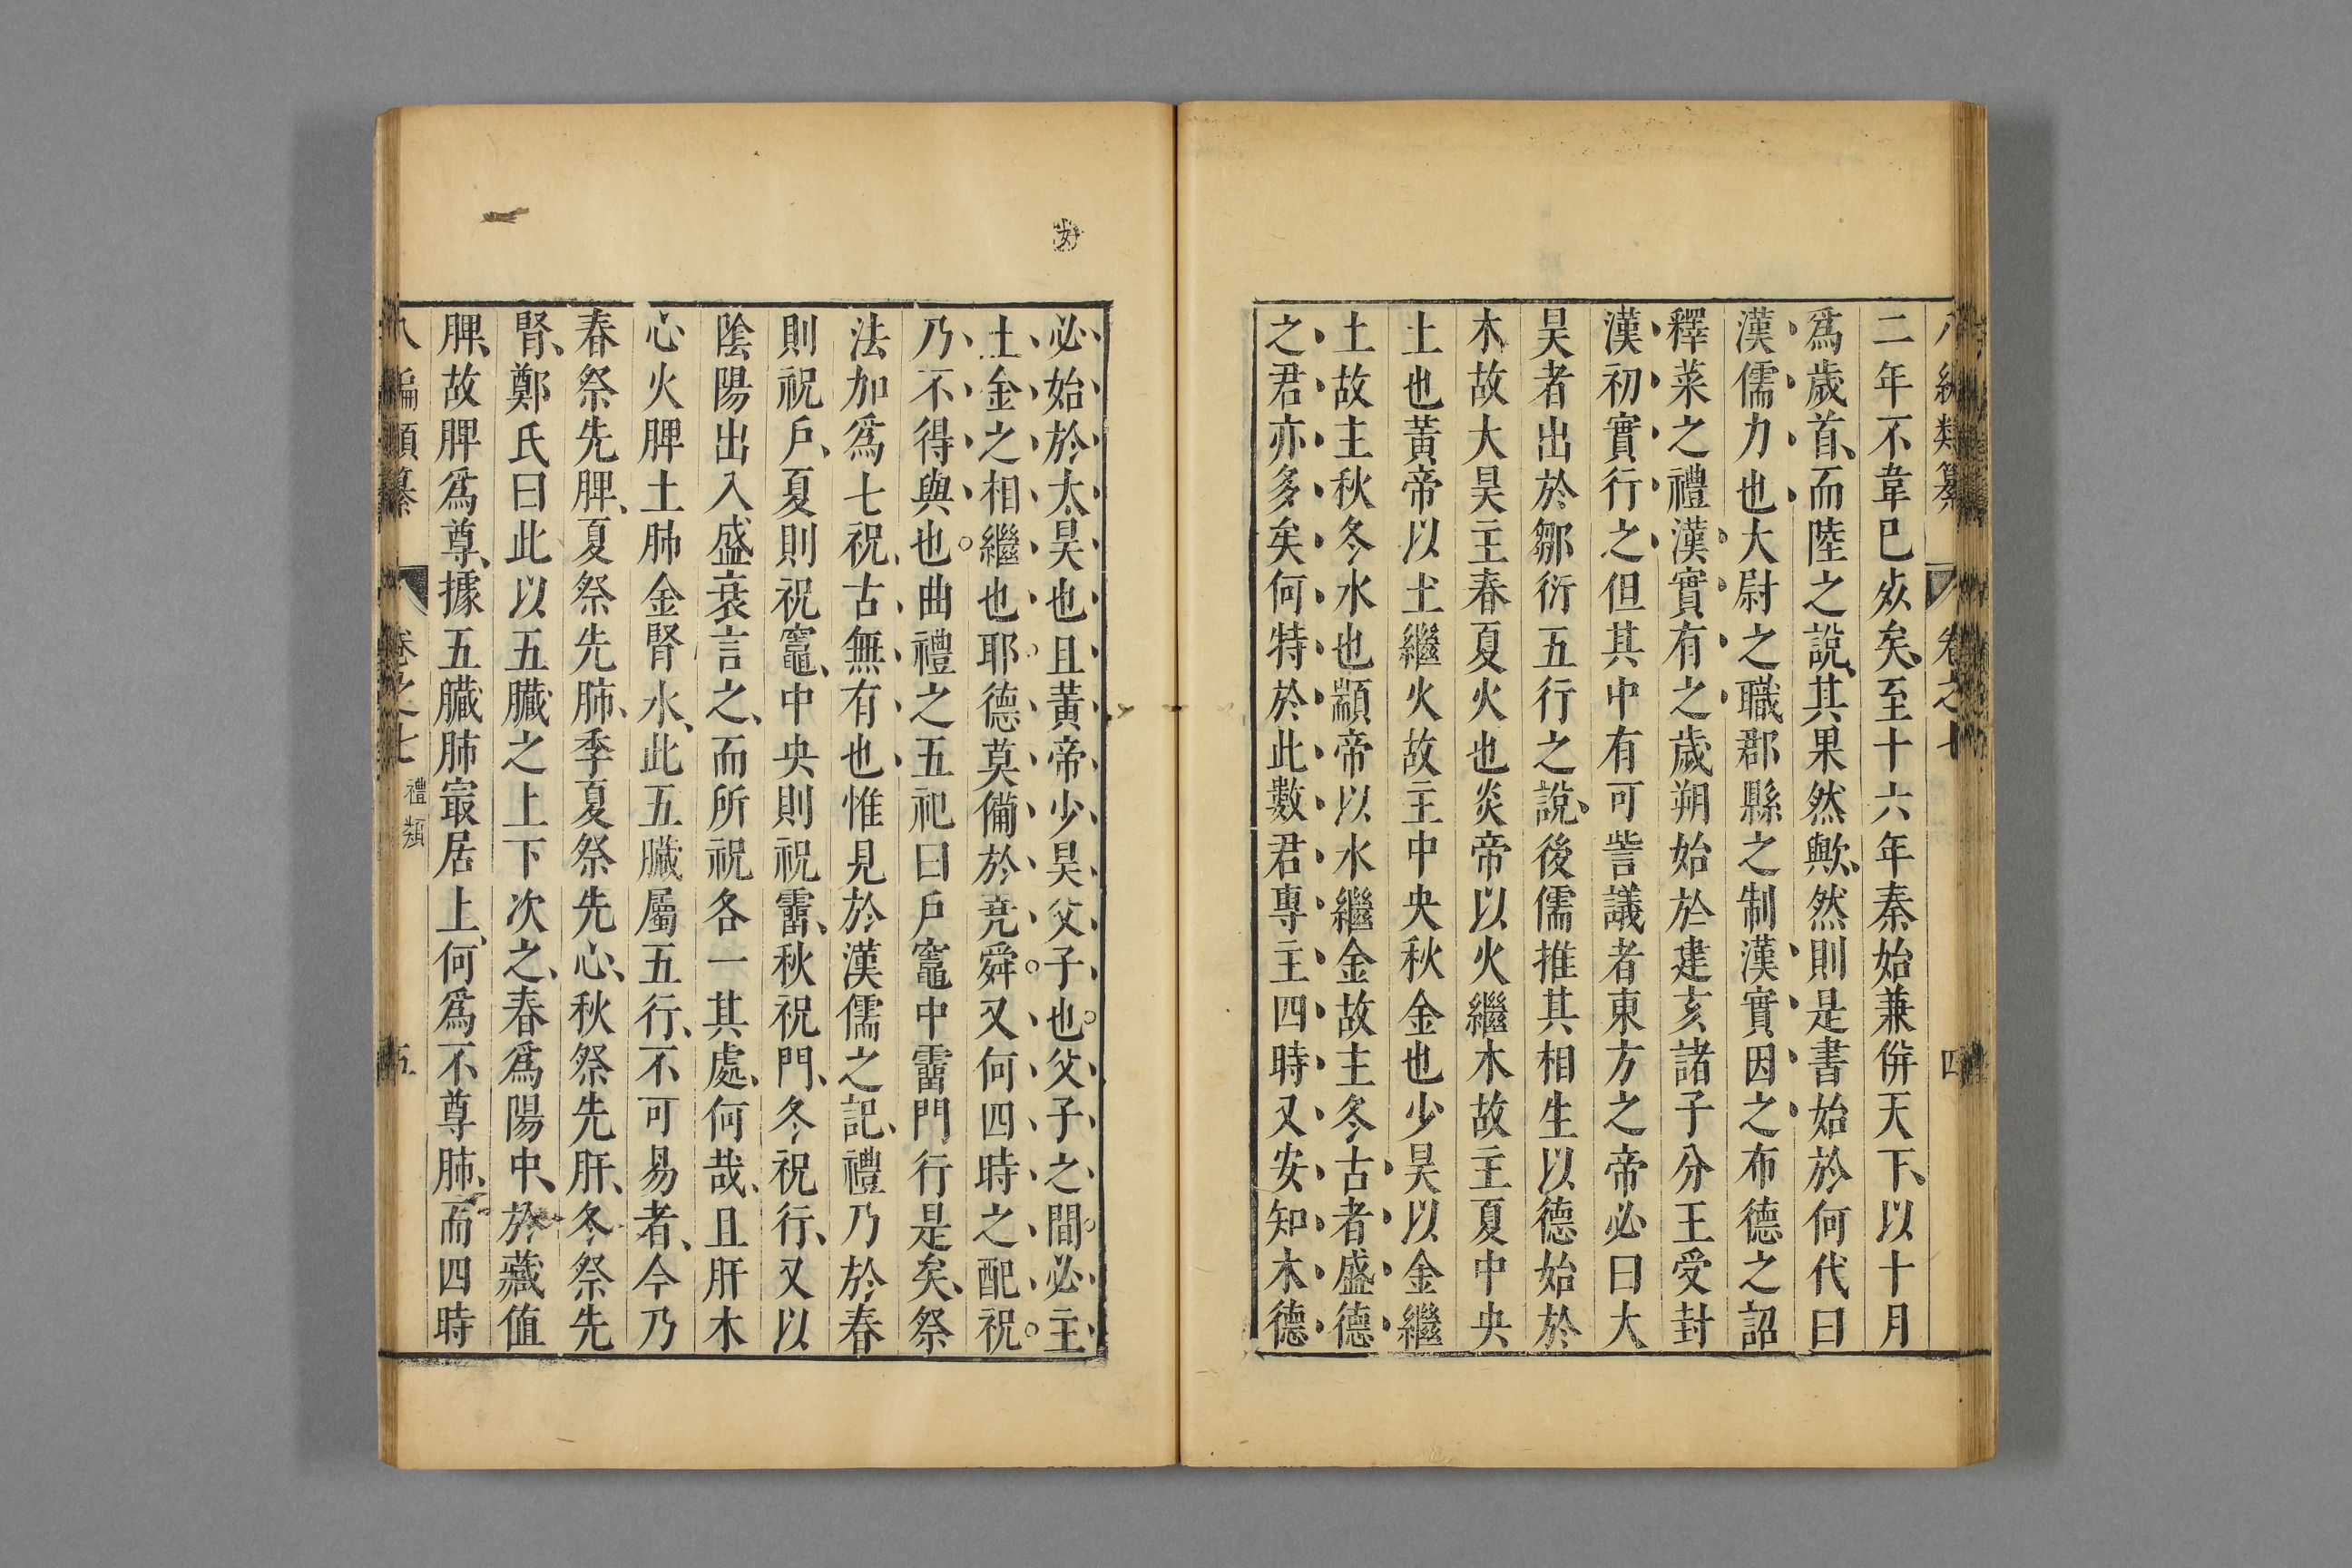 二年不韋已歿矣至十六年秦始兼併天下以十月
爲歲首而陸之說其果然歟然則是書始於何代曰
漢儒力也大尉之職郡縣之制漢實因之布德之詔
釋菜之禮漢實有之歲朔始於建亥諸子分王受封
漢初實行之但其中有可訾議者東方之帝必曰大
昊者出於鄒衍五行之說後儒推其相生以德始於
木故大昊主春夏火也炎帝以火繼木故主夏中央
土也黃帝以土繼火故主中央秋金也少昊以金繼
土故主秋冬水也顓帝以水繼金故主冬古者盛德
之君亦多矣何特於此數君專主四時又安知木德
必始於太昊也且黃帝少昊父子也父子之間必主
土金之相繼也耶德莫備於堯舜又何四時之配祝
乃不得與也曲禮之五祀曰戶竈中霤門行是矣祭
法加爲七祝古無有也惟見於漢儒之記禮乃於春
則祝戶夏則祝竈中央則祝霤秋祝門冬祝行又以
陰陽出入盛衰言之而所祝各一其處何哉且肝木
心火脾土肺金腎水此五臟屬五行不可易者今乃
春祭先脾夏祭先肺季夏祭先心秋祭先肝冬祭先
腎鄭氏曰此以五臟之上下次之春爲陽中於藏值
脾故脾爲尊據五臟肺㝡居上何爲不尊肺而四時
八編類纂 卷之七 禮類 五